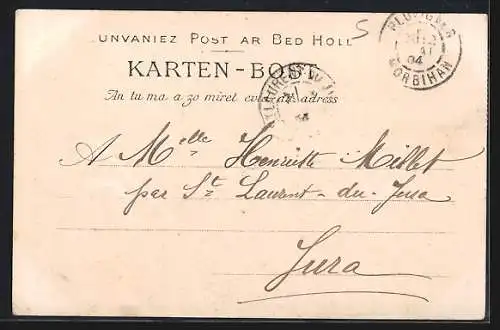 UNVANIEZ POST AR BED HOLL
KARTEN-BOST
An tu ma a zo miret evid an adress
5
PLUVIGNER
04
MORBIHAN
A Melle Henriette Millet
par St Laurent-du-Jura
Jura